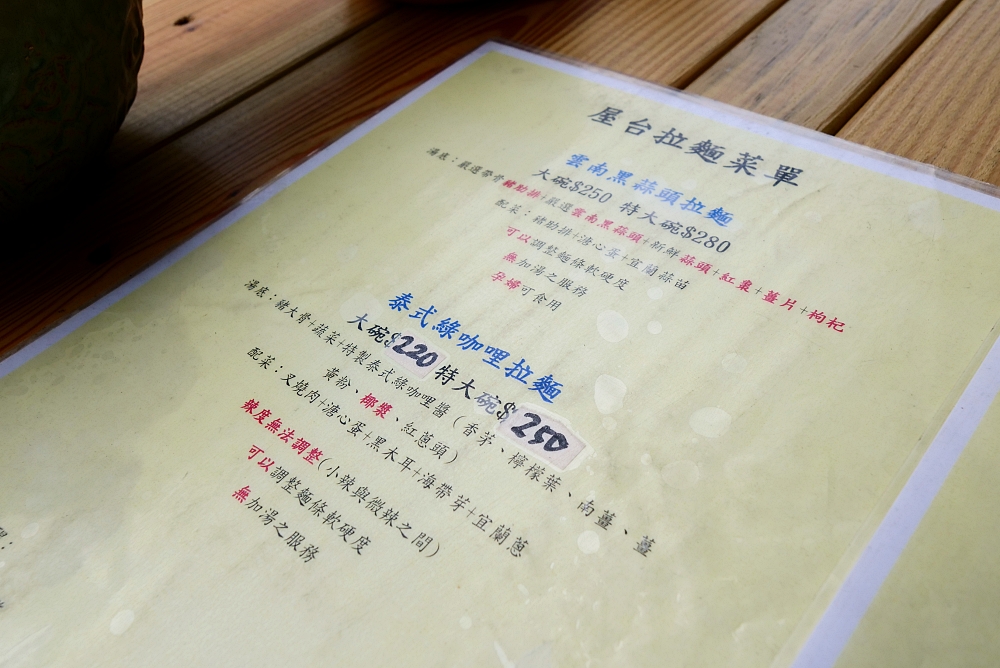 屋台拉麵菜單
雲南黑蒜頭拉麵
大碗$250 特大碗$280
湯底：嚴選帶骨豬肋排+嚴選雲南黑蒜頭+新鮮蒜頭+紅棗+薑片+枸杞
配菜：豬肋排+溏心蛋+宜蘭蒜苗
可以調整麵條軟硬度
無加湯之服務
孕婦可食用
泰式綠咖哩拉麵
大碗$220 特大碗$250
湯底：豬大骨+蔬菜+特製泰式綠咖哩醬（香茅、檸檬葉、南薑、薑
黃粉、椰漿、紅蔥頭）
配菜：叉燒肉+溏心蛋+黑木耳+海帶芽+宜蘭蔥
辣度無法調整(小辣與微辣之間)
可以調整麵條軟硬度
無加湯之服務